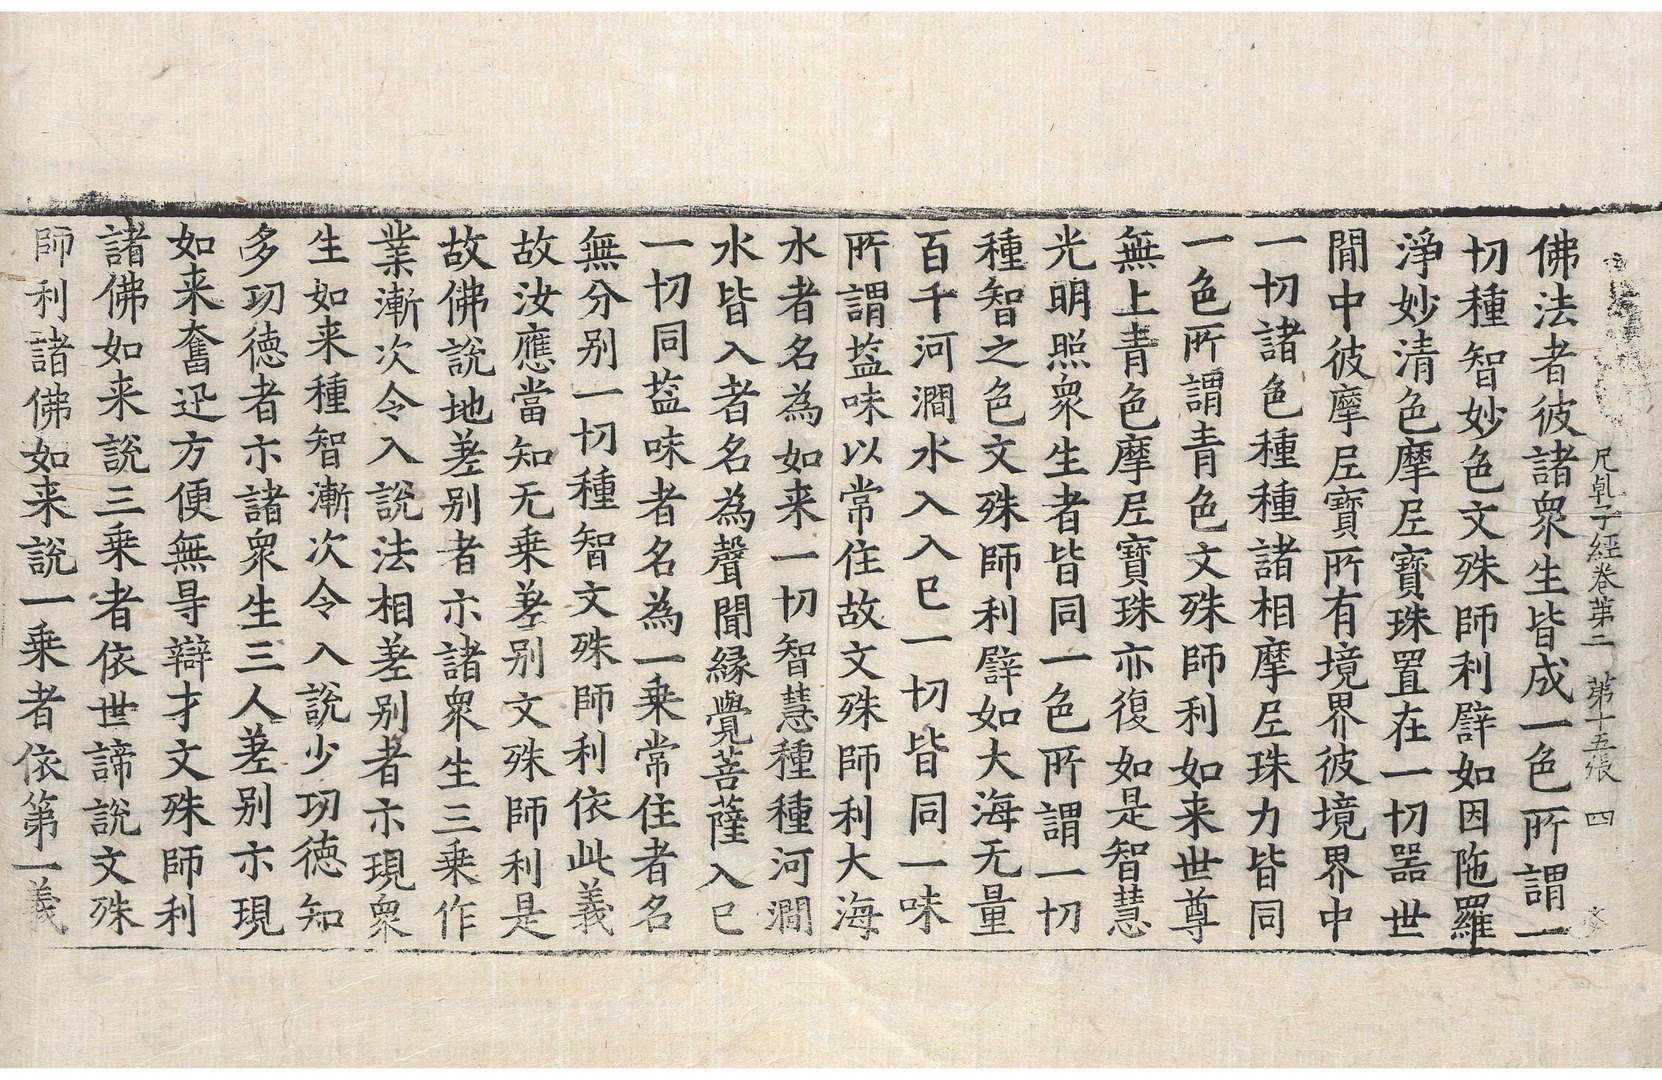 尼乹子經卷第二　第十五張　四
佛法者彼諸衆生皆成一色所謂一
切種智妙色文殊師利譬如因陁羅
淨妙清色摩尼寶珠置在一切器世
閒中彼摩尼寶所有境界彼境界中
一切諸色種種諸相摩尼珠力皆同
一色所謂青色文殊師利如来世尊
無上青色摩尼寶珠亦復如是智慧
光明照衆生者皆同一色所謂一切
種智之色文殊師利譬如大海无量
百千河澗水入入已一切皆同一味
所謂塩味以常住故文殊師利大海
水者名為如来一切智慧種種河澗
水皆入者名為聲聞緣覺菩薩入已
一切同塩味者名為一乗常住者名
無分别一切種智文殊師利依此義
故汝應當知无乗差别文殊師利是
故佛說地差别者示諸衆生三乗作
業漸次令入說法相差别者示現衆
生如来種智漸次令入說少功德知
多功德者示諸衆生三人差别示現
如来奮迅方便無㝵辯才文殊師利
諸佛如来說三乗者依世諦說文殊
師利諸佛如来說一乗者依第一義